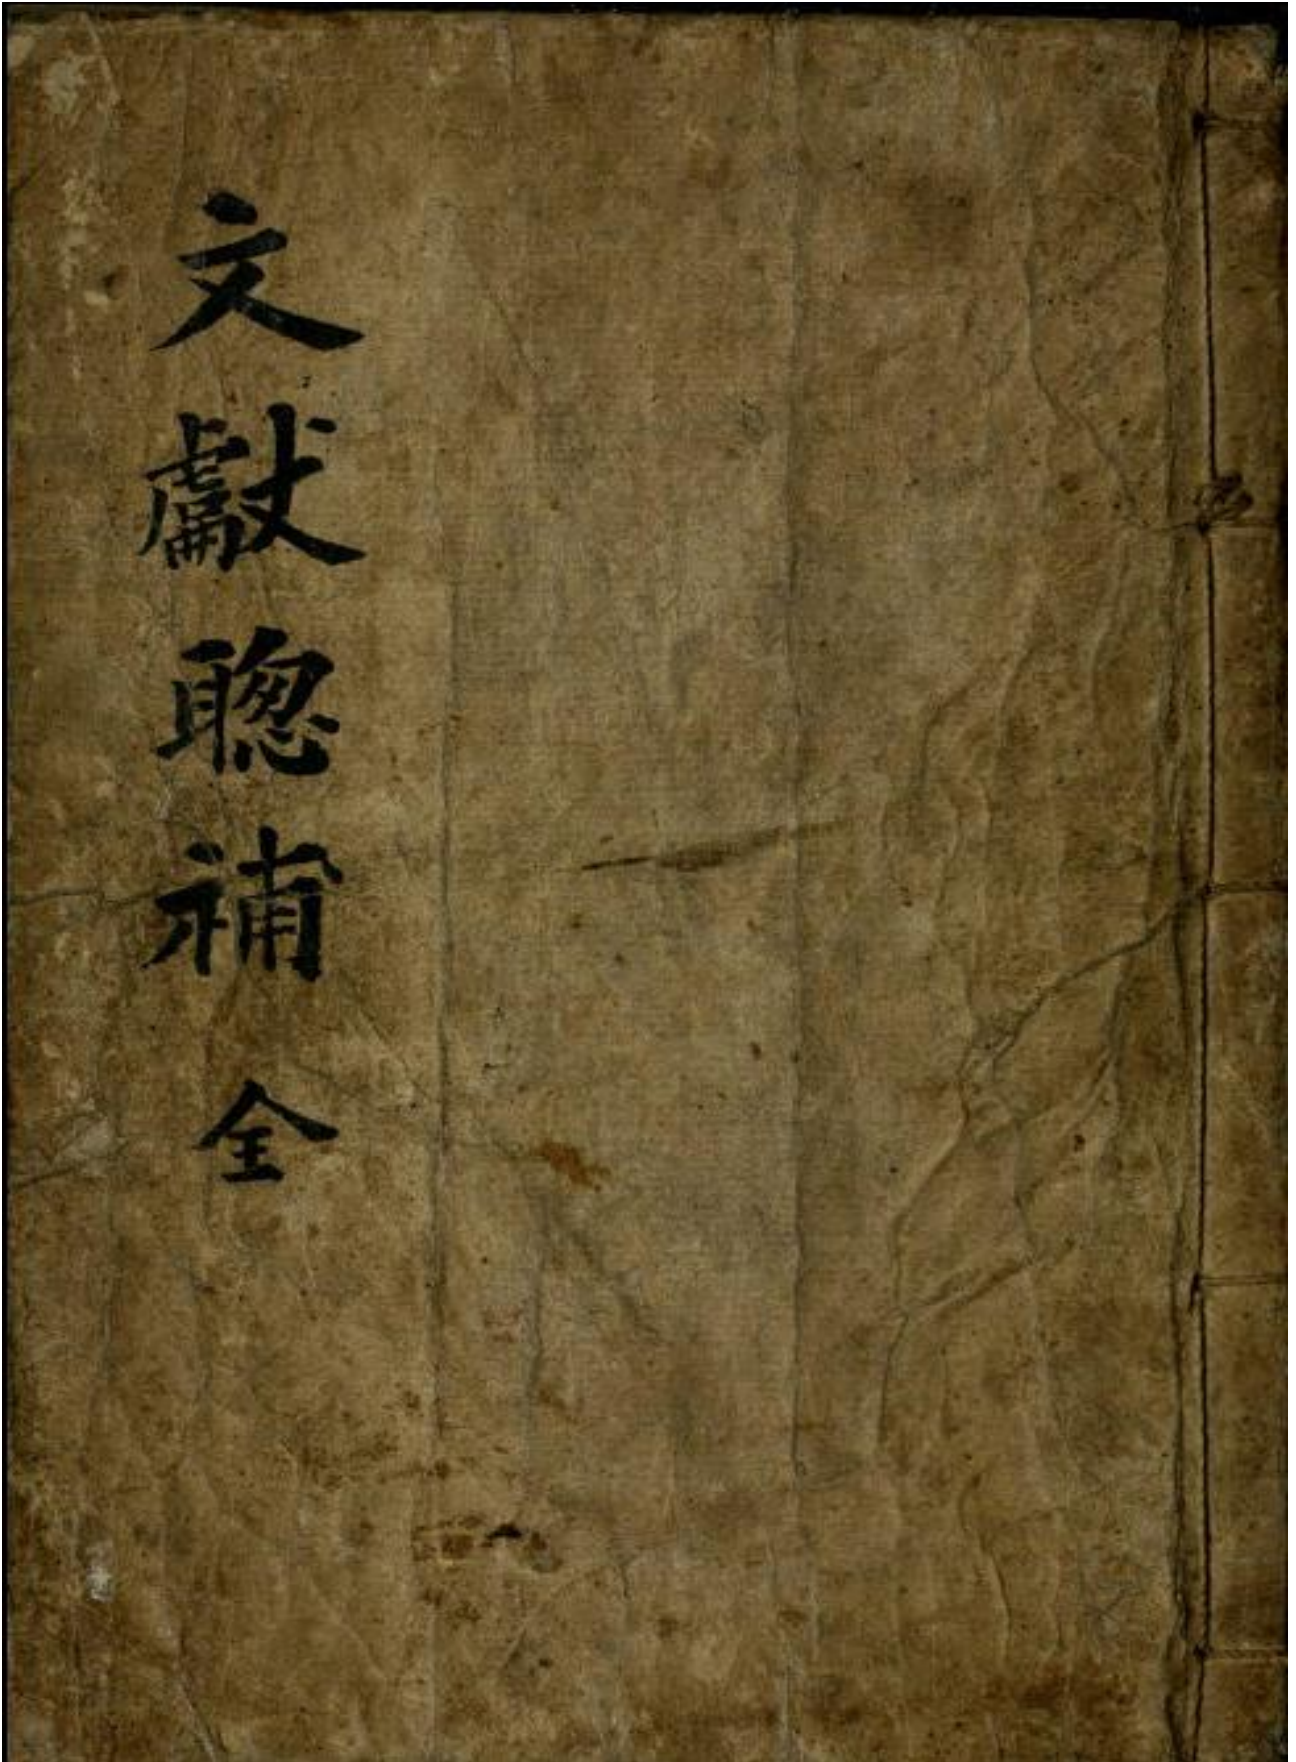 文獻聦補 全